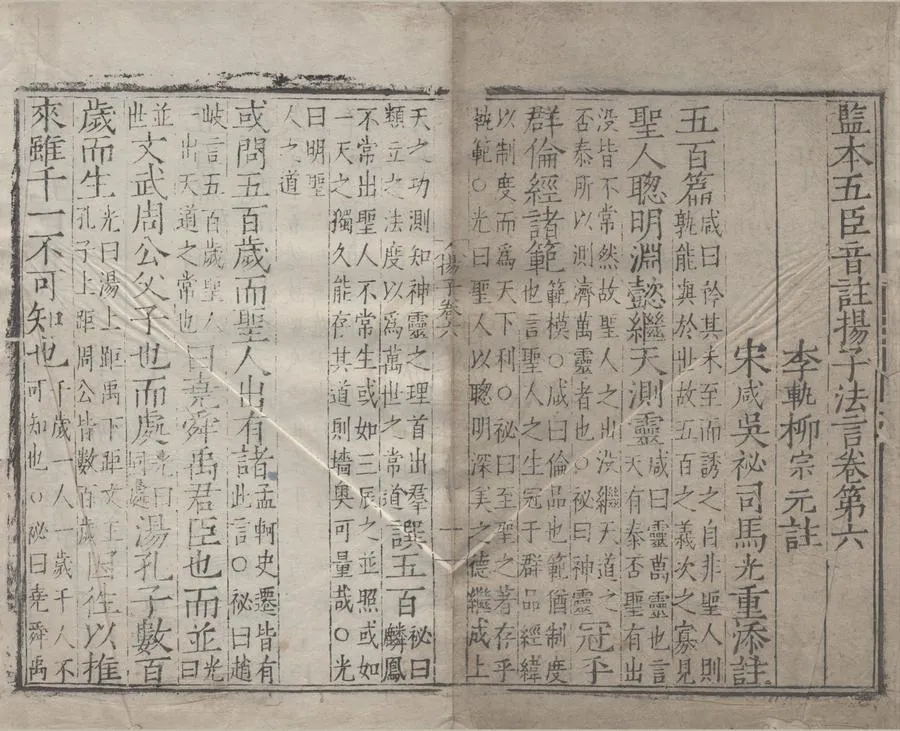 監本五臣音註揚子法言卷第六
李軌柳宗元註
宋咸吳祕司馬光重添註
五百篇咸曰矜其未至而誘之自非聖人則孰能與於世故五百之義次之寡見
聖人聰明淵懿繼天測靈咸曰靈萬靈也言天有泰否聖有出
没皆不常然故聖人之出没繼天道之否泰所以測濟萬靈者也○祕曰神靈冠乎
群倫經諸範範模○咸曰倫品也範猶制度也言聖人之生冠于群品經緯
以制度而爲天下利○祕曰至聖之著存乎執範○光曰聖人以聰明深美之德繼成上
揚子卷六
天之功測知神靈之理首出羣類立之法度以爲萬世之常道譔五百祕曰麟鳳
不常出聖人不常生或如三辰之並照或如一天之獨久能存其道則墻奧可量哉○光
曰明聖人之道
或問五百歲而聖人出有諸孟軻史遷皆有此言○祕曰趙
岐言五百歲聖人一出天道之常也曰堯舜禹君臣也而並光曰
並世文武周公父子也而處光曰同處湯孔子數百
歲而生光曰湯上距禹下距文王孔子上距周公皆數百歲因往以推
來雖千一不可知也千歲一人一歲千人不可知也○祕曰堯舜禹